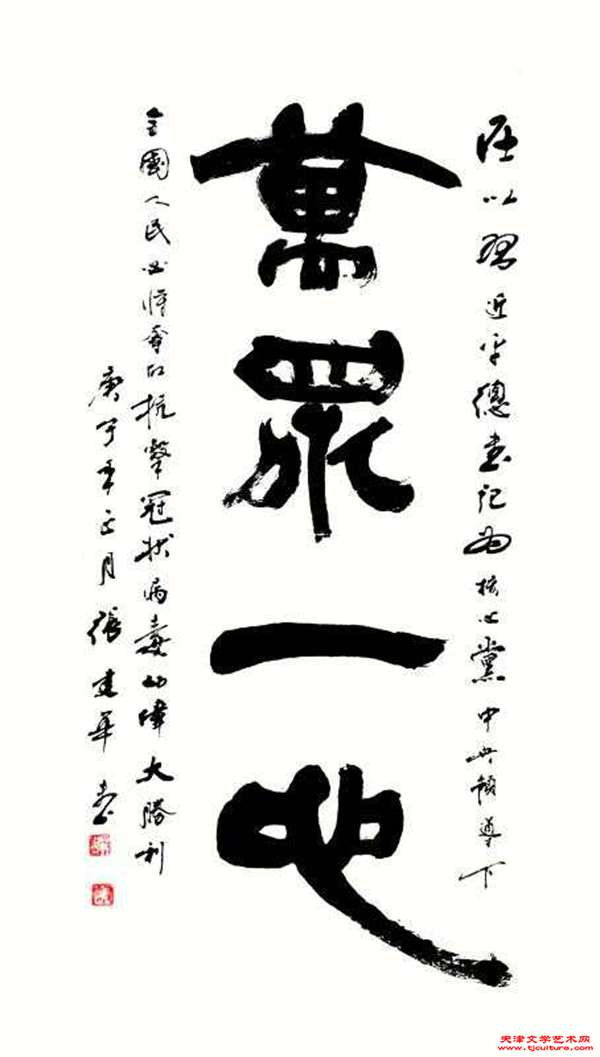 在以習近平總書記為核心黨中央領導下
萬眾一心
全國人民必將奪取抗擊冠狀病毒的偉大勝利
庚子年正月張建華書
天津文学艺术网
www.tjculture.com